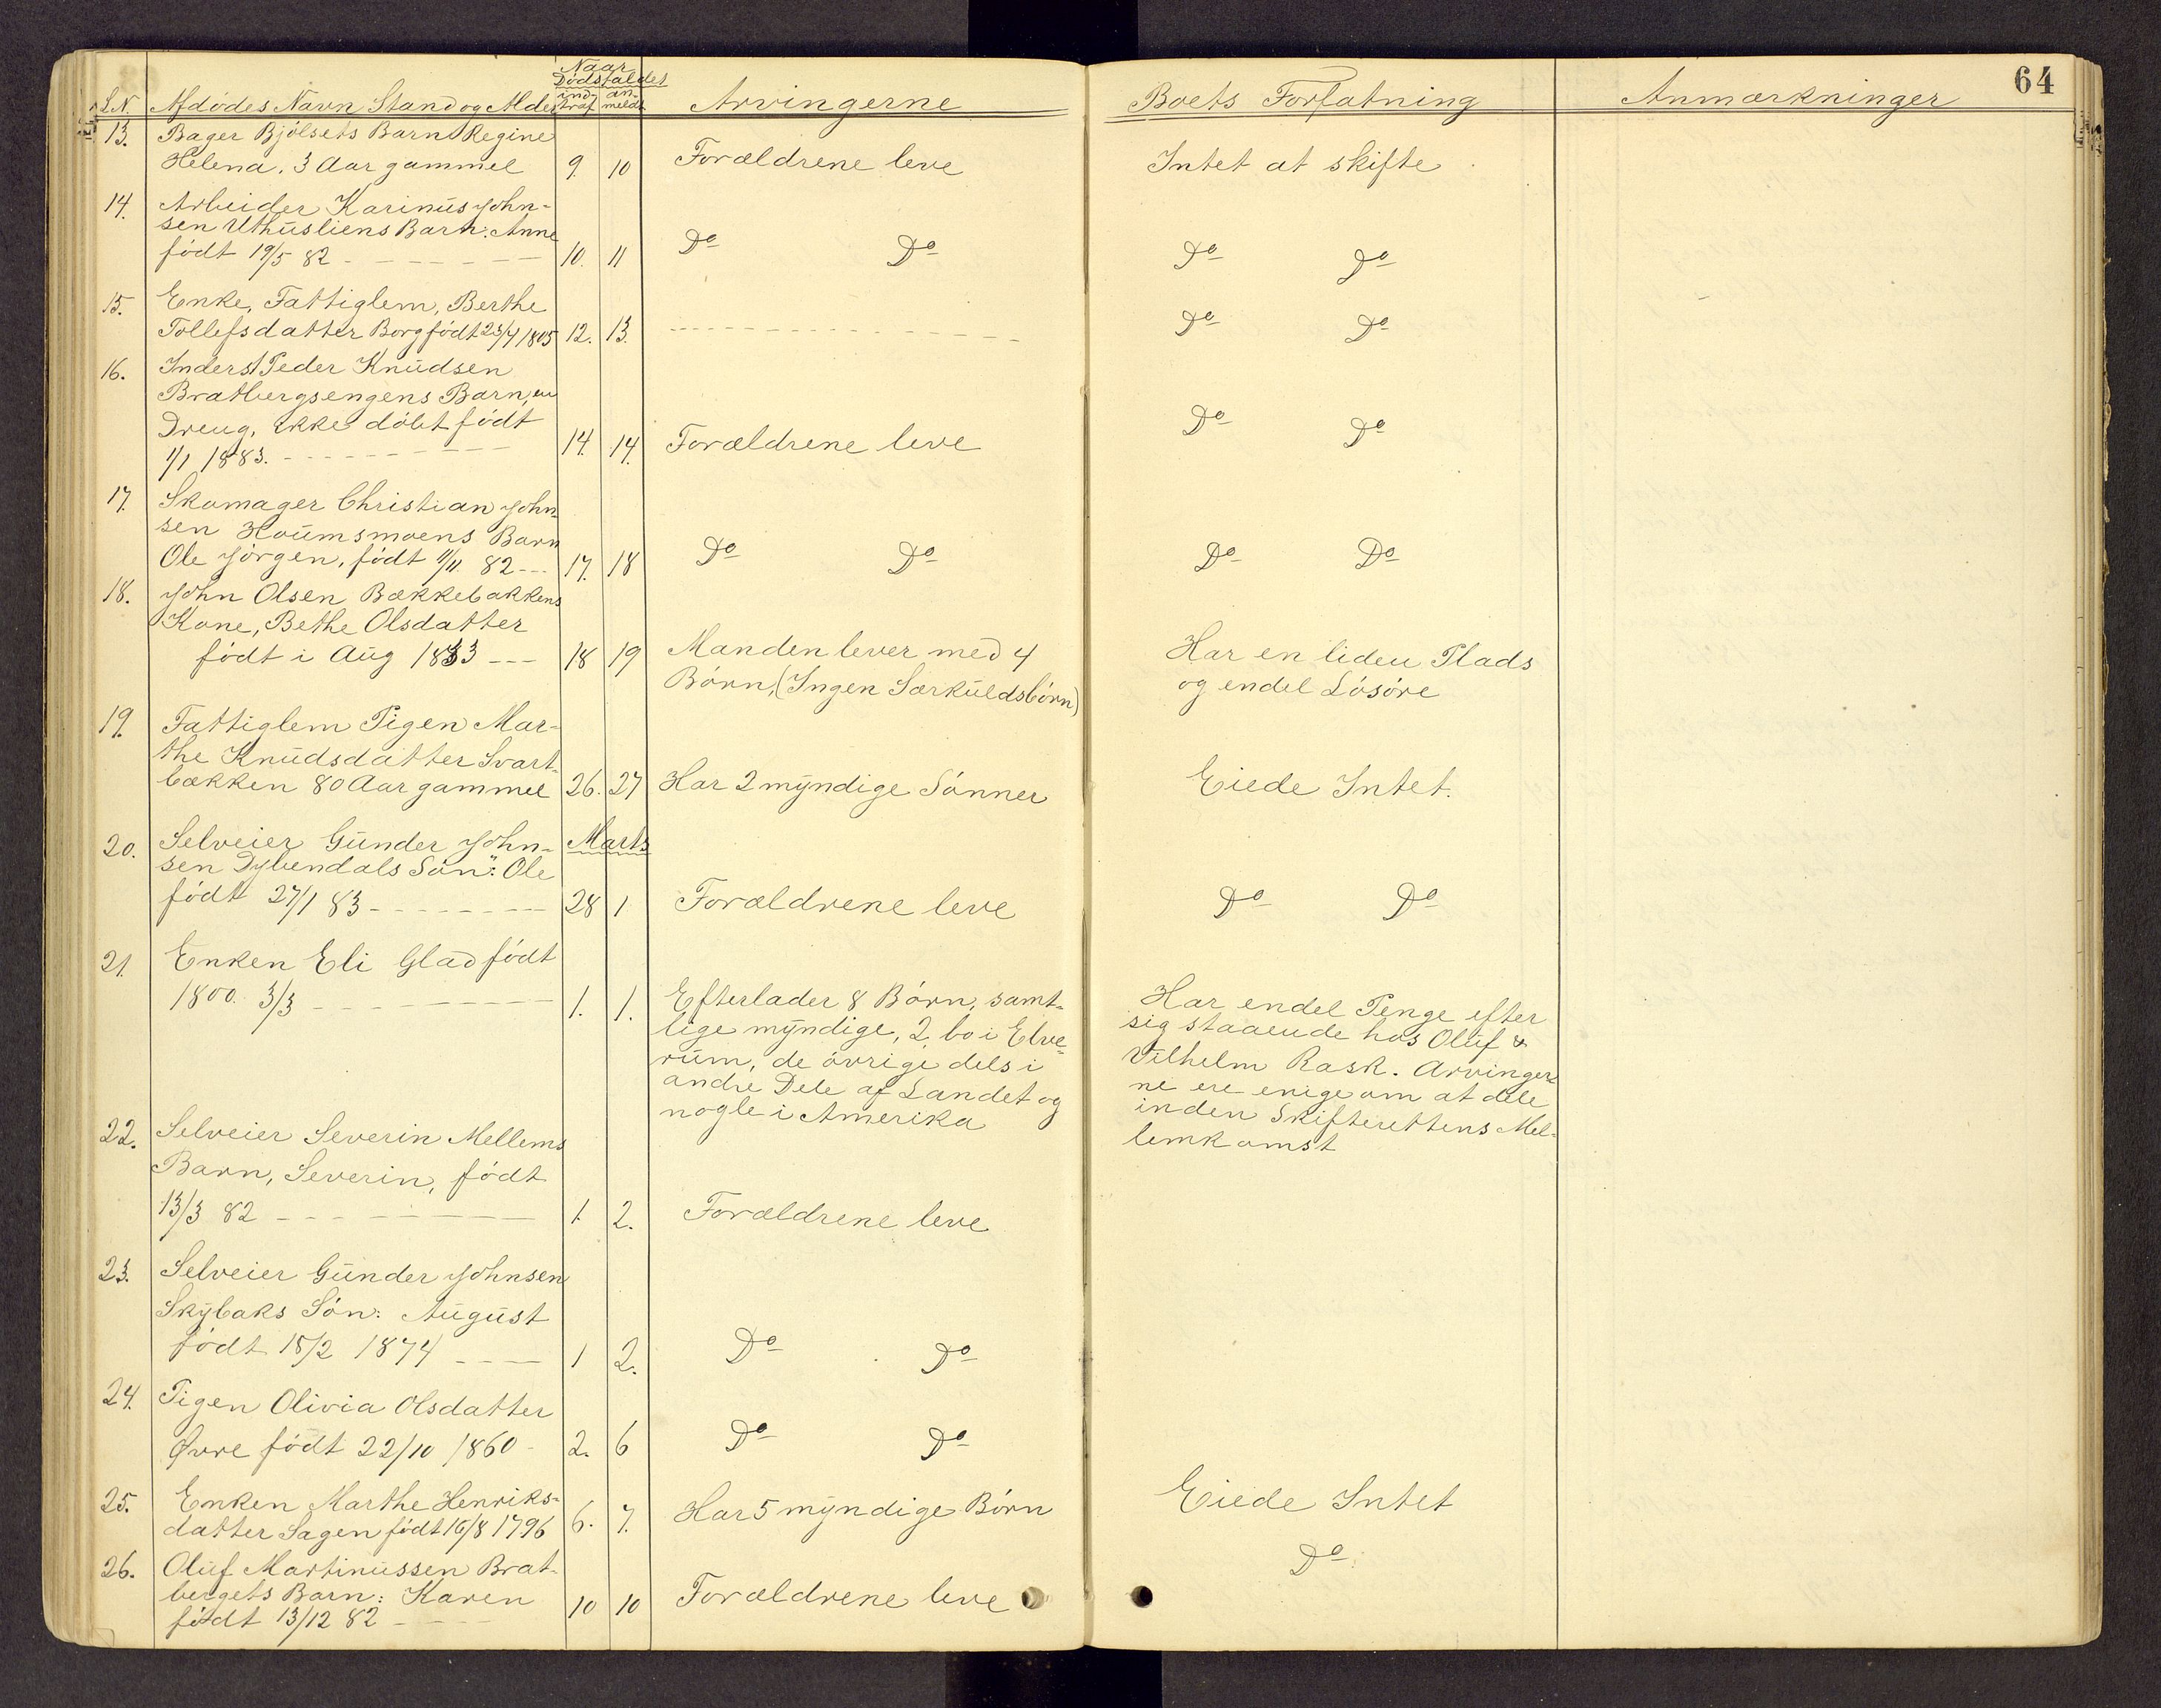 64
Naar
Dødsfaldet
L.N. Afdødes Navn Stand og Alder ind- traf an- meldt Arvingerne Boets Forfatning Anmærkninger
13. Bager Bjölsets Barn Regine
Helena. 3 Aar gammel 9. 10 Forældrene leve Intet at skifte
14. Arbeider Karinus John-
sen Uthusliens Barn: Anne
födt 19/5 82 - - - - - - 10. 11 Do Do Do Do
15. Enke, Fattiglem, Berthe
Tollefsdatter Borg födt 23/4 1805 12. 13. - - - - - - - - Do Do
16. Inderst Peder Knudsen
Bratbergsengens Barn, en
Dreng, ikke döbt födt
1/1 1883. - - - - - - 14. 14. Forældrene leve Do Do
17. Skomager Christian John-
sen Houmsmoens Barn
Ole Jörgen, födt 11/11 82 - - - 17. 18 Do Do Do Do
18. John Olsen Bækkebakkens
Kone, Bethe Olsdatter
födt i Aug 1833 - - - 18 19 Manden lever med 4 Har en liden Plads
Börn, (Ingen Særkuldsbörn) og endel Lösöre
19. Fattiglem Pigen Mar-
the Knudsdatter Svart-
bækken 80 Aar gammel 26. 27 Har 2 myndige Sönner Eiede Intet.
20. Selveier Gunder John- Marts
sen Dybendals Sön: Ole
födt 27/1 83 - - - - - - 28 1 Forældrene leve Do Do
21. Enken Eli Glad födt
1800. 3/3 - - - - - - 1. 1. Efterlader 8 Börn, samt- Har endel Penge efter
lige myndige, 2 bo i Elve- sig staaende hos Oluf &
rum, de övrige dels i Vilhelm Rask. Arvinger-
andre Dele af Landet og ne ere enige om at dele
nogle i Amerika inden Skifterettens Mel-
lemkomst
22. Selveier Severin Mellems
Barn, Severin, födt
13/3 82 - - - - - - 1. 2. Forældrene leve
23. Selveier Gunder Johnsen
Skybaks Sön: August
födt 15/2 1874 - - - 1 2. Do Do
24. Pigen Olivia Olsdatter
Øvre födt 22/10 1860 - 2. 6 Do Do
25. Enken Marthe Henriks-
datter Sagen födt 16/8 1796 6. 7. Har 5 myndige Börn Eiede Intet
26. Oluf Martinussen Brat-
bergets Barn: Karen
födt 13/12 82 - - - 10 10 Forældrene leve Do